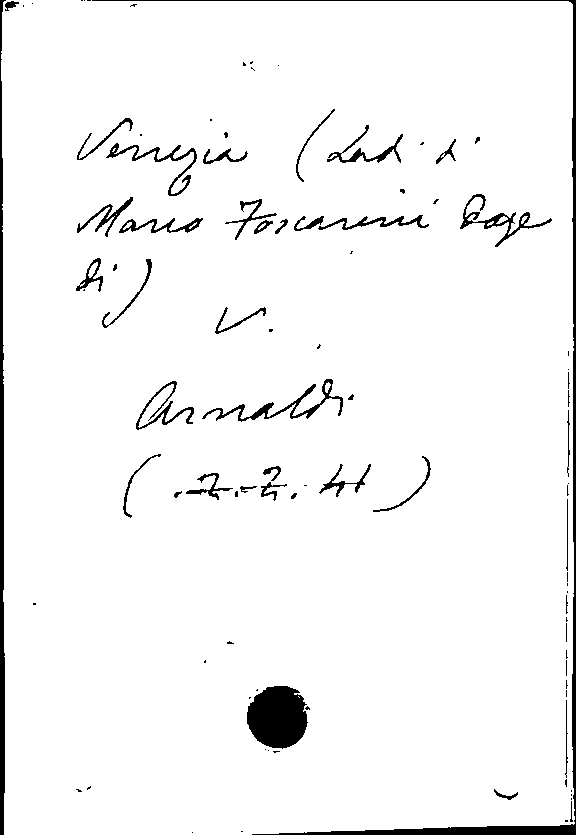 Venezia (Lodi di
Marco Foscarini Doge
di)
V.
Arnaldi
(.Z.Z. 41)